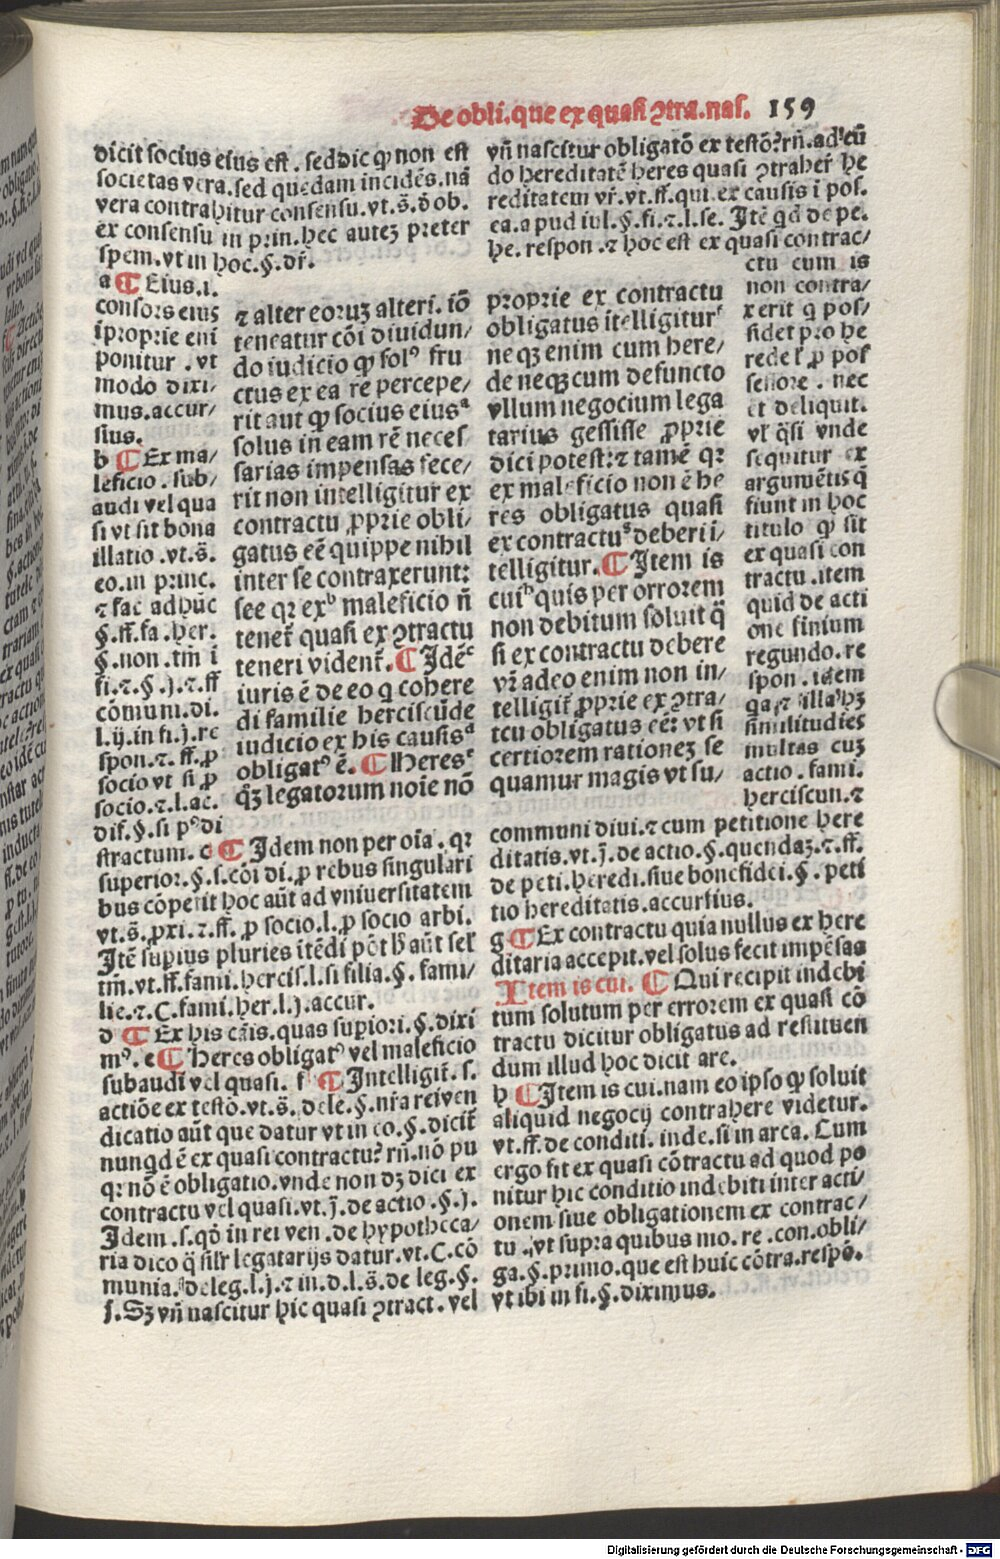 De obli.que ex quasi ꝯtra.nas. 159
dicit socius eius est . sed dic ꝙ non est
societas vera.sed quedam incidēs.nā
vera contrahitur consensu.vt.s̄.ꝺ ob.
ex consensu in prin.hec auteꝫ preter
spem.vt in hoc.§.dr̄.
a ¶ Eius.i.
consors eius
īproprie eni
ponitur . vt
modo dixi-
mus.accur/
sius.
b ¶ Ex ma/
leficio . sub/
audi vel qua
si vt sit bona
illatio .vt.s̄.
eo.in princ.
⁊ fac ad hūc
§.ff.fa .her.
§.non .tm̄ ī
fi.⁊.§ .j.⁊.ff
cōmuni.di.
l.ij.in fi.j.re
spon.⁊.ff.ꝓ
socio vt si ꝓ
socio.⁊.l.ac.
dif.§.si pꝰ di
stractum. c ¶ Idem non per oīa . qꝛ
superior.§.s.cōi di.ꝓ rebus singulari
bus cōpetit hoc aūt ad vniuersitatem
vt.s̄.ꝓxi.⁊.ff.ꝓ socio.l.ꝓ socio arbi.
Itē supius pluries itēdi pōt h̄ aūt sel̄
tm̄.vt.ff.fami.hercis.l.si filia.§. fami/
lie.⁊.C.fami.her.l.j.accur.
d ¶ Ex his cāis.quas supiori.§.dixi
mꝰ. e ¶ Heres obligatꝰ vel maleficio
subaudi vel quasi. f ¶ Intelligit̄. s.
actiōe ex testō.vt.s̄. de le.§.nr̄a reiven
dicatio aūt que datur vt in eo.§.dicit̄
nunqd ē ex quasi contractu? rn̄.nō pu
qꝛ nō ē obligatio.vnde non dꝫ dici ex
contractu vel quasi.vt.j̄.de actio.§.j.
Idem .s.qō in rei ven .de hypotheca/
ria dico q̄ silr̄ legatarijs datur.vt.C.cō
munia.de leg.l.j.⁊ in.d.l.s̄.de leg.§.
j.Sꝫ vn̄ nascitur hic quasi ꝯtract.vel
⁊ alter eoruꝫ alteri. iō
teneatur cōi diuidun/
do iudicio ꝙ solꝰ fru
ctus ex ea re percepe/
rit aut ꝙ socius eiusᵃ
solus in eam rē neces
sarias impensas fece/
rit non intelligitur ex
contractu ꝓprie obli/
gatus eē quippe nihil
inter se contraxerunt:
see qꝛ exᵇ maleficio n̄
tenet̄ quasi ex ꝯtractu
teneri vident̄. ¶ Idēᶜ
iuris ē de eo q cohere
di familie herciscūde
iudicio ex his causisᵈ
obligatꝰ ē. ¶ Heresᵉ
qꝫ legatorum noīe nō
vn̄ nascitur obligatō ex testō?rn̄.ad eū
do hereditatē heres quasi ꝯtraher̄ he
reditatem vr̄.vt.ff.qui.ex causis ī pos.
ea.apud iul.§.fi.⁊.l.se. Itē qd de pe.
he. respon .⁊ hoc est ex quasi contrac/
ctu cum is
non contra/
xerit q pos/
sidet pro he
rede l̄ ꝓ pos
sessore . nec
et deliquit.
vl̄ q̄si vnde
sequitur ex
argumētis q̄
fiunt in hoc
titulo ꝙ sit
ex quasi con
tractu .item
quid de acti
one finium
regundo.re
spon . idem
similitudies
multas cuꝫ
actio . fami.
herciscun.⁊
proprie ex contractu
obligatus ītelligiturᶠ
neqꝫ enim cum here/
de neqꝫ cum defuncto
vllum negocium lega
tarius gessisse ꝓprie
dici potest:⁊ tamē qꝛ
ex maleficio non ē he
res obligatus quasi
ex contractuᵍ deberi ī/
telligitur. ¶ Item is
cuiʰ quis per orrorem
non debitum soluit q̄
si ex contractu debere
vr̄ adeo enim non in/
telligit̄ ꝓprie ex ꝯtra/
ctu obligatus eē: vt si
certiorem rationeꝫ se
quamur magis vt su/
communi diui.⁊ cum petitione here
ditatis.vt.j̄.de actio.§.quendaꝫ.⁊.ff.
de peti.heredi.siue bonefidei.§ . peti
tio hereditatis.accursius.
g ¶ Ex contractu quia nullus ex here
ditaria accepit.vel solus fecit impēsas
Item is cui. ¶ Qui recipit indebi
tum solutum per errorem ex quasi cō
tractu dicitur obligatus ad restituen
dum illud hoc dicit are.
h ¶ Item is cui.nam eo ipso ꝙ soluit
aliquid negocij contrahere videtur.
vt.ff.de conditi. inde.si in arca. Cum
ergo fit ex quasi cōtractu ad quod po
nitur hic conditio indebiti inter acti/
onem siue obligationem ex contrac/
tu .vt supra quibus mo. re .con.obli/
ga.§.primo.que est huic cōtra.respō.
vt ibi in fi.§.diximus.
Digitalisierung gefördert durch die Deutsche Forschungsgemeinschaft - DFG